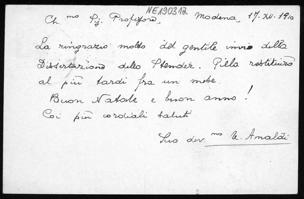 NE130312
Ch.mo Sig. Professore, Modena, 17. XII. 1910
La ringrazio molto del gentile invio della
Dissertazione dello Stender. Gliela restituirò
al più tardi fra un mese.
Buon Natale e buon anno!
Coi più cordiali saluti
Suo dev.mo U. Amaldi